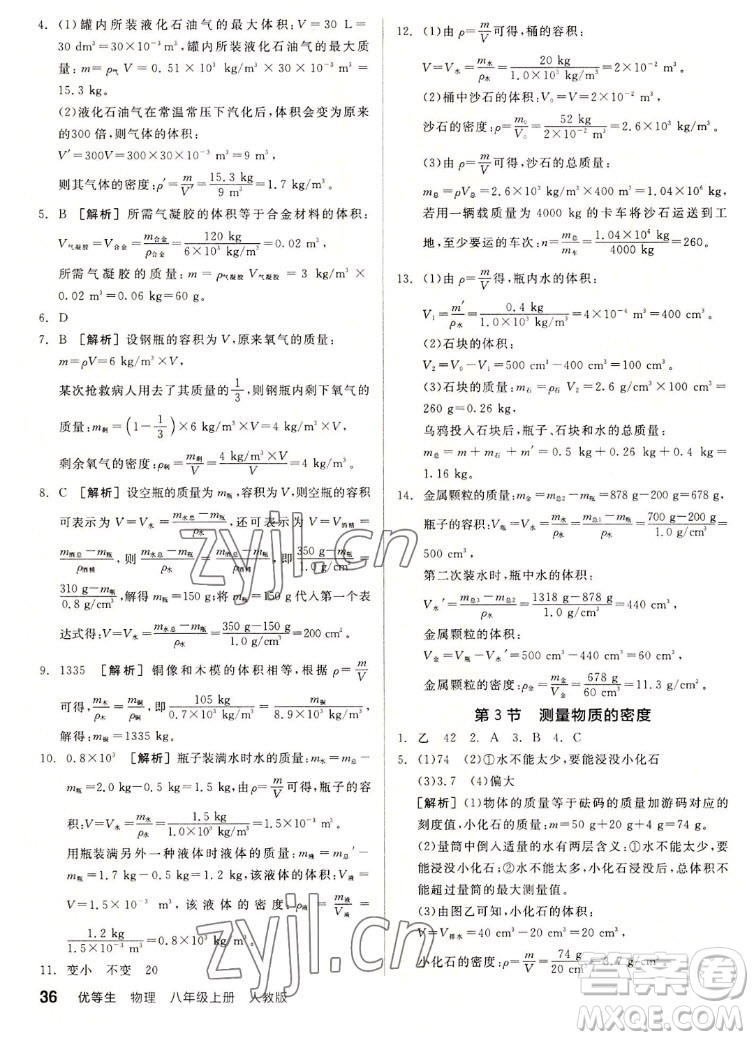 4. (1)罐内所装液化石油气的最大体积: V = 30 L =
30 dm³ = 30 × 10⁻³ m³, 罐内所装液化石油气的最大质
量: m = ρ气 V = 0.51 × 10³ kg/m³ × 30 × 10⁻³ m³ =
15.3 kg.
(2)液化石油气在常温常压下汽化后,体积变为原来
的300倍,则气体的体积:
V′=300V=300×30×10⁻³ m³=9 m³,
则其气体的密度:ρ′=m/V′=15.3 kg/9 m³=1.7 kg/m³.
5. B [解析] 所需气凝胶的体积等于合金材料的体积:
V气凝胶=V合金=m合金/ρ合金=120 kg/6×10³ kg/m³=0.02 m³,
所需气凝胶的质量:m=ρ气凝胶 V气凝胶=3 kg/m³×
0.02 m³=0.06 kg=60 g.
6. D
7. B [解析] 设钢瓶的容积为V,原来氧气的质量:
m=ρV=6 kg/m³×V,
某次抢救病人用去了其质量的1/3,则钢瓶内剩下氧气的
质量:m剩=(1-1/3)×6 kg/m³×V=4 kg/m³×V,
剩余氧气的密度:ρ剩=m剩/V=4 kg/m³×V/V=4 kg/m³.
8. C [解析] 设空瓶的质量为m瓶,容积为V,则空瓶的容积
可表示为V=V水=m水总-m瓶/ρ水,还可表示为V=V酒精=
m酒总-m瓶/ρ酒精,则m水总-m瓶/ρ水=m酒总-m瓶/ρ酒精,即350 g-m瓶/1.0 g/cm³=
310 g-m瓶/0.8 g/cm³,解得m瓶=150 g;将m瓶=150 g代入第一个表
达式得:V=m水总-m瓶/ρ水=350 g-150 g/1.0 g/cm³=200 cm³.
9. 1335 [解析] 铜像和木模的体积相等,根据ρ=m/V
可得,m木/ρ木=m铜/ρ铜,即105 kg/0.7×10³ kg/m³=m铜/8.9×10³ kg/m³,
解得m铜=1335 kg.
10. 0.8×10³ [解析] 瓶子装满水时水的质量:m水=
2 kg-0.5 kg=1.5 kg,由ρ=m/V可得,瓶子的容
积:V=V水=m水/ρ水=1.5 kg/1.0×10³ kg/m³=1.5×10⁻³ m³;
用瓶装满水液体时液体的质量:m液=m总′-m瓶
=1.7 kg-0.5 kg=1.2 kg,液体的体积:V液=V
=1.5×10⁻³ m³,该液体的密度:ρ液=m液/V液=
1.2 kg/1.5×10⁻³ m³=0.8×10³ kg/m³.
11. 变小 不变 20
36 优等生 物理 八年级上册 人教版
12. (1)由ρ=m/V可得,桶的容积:
V=V水=m水/ρ水=20 kg/1.0×10³ kg/m³=2×10⁻² m³.
(2)桶中沙石的体积:V₀=V=2×10⁻² m³,
沙石的密度:ρ=m₀/V₀=52 kg/2×10⁻² m³=2.6×10³ kg/m³.
(3)由ρ=m/V可得,沙石的总质量:
m总=ρV总=2.6×10³ kg/m³×400 m³=1.04×10⁶ kg,
若用一辆载质量为4000 kg的卡车将沙石运送至工
地,至少需要运送的车次:n=m总/m车=1.04×10⁶ kg/4000 kg=260.
13. (1)由ρ=m/V可得,瓶内水的体积:
V₁=m′/ρ水=0.4 kg/1.0×10³ kg/m³=4×10⁻⁴ m³=400 cm³.
(2)石块的体积:
V₂=V₀-V₁=500 cm³-400 cm³=100 cm³.
(3)石块的质量:m石=ρ石V₂=2.6 g/cm³×100 cm³=
260 g=0.26 kg,
乌鸦投入石块后,瓶子、石块和水的总质量:
m总=m+m石+m′=0.5 kg+0.26 kg+0.4 kg=
1.16 kg.
14. 金属颗粒的质量:m金=m总2-m瓶=878 g-200 g=678 g,
瓶子的容积:V=V水=m水/ρ水=m总1-m瓶/ρ水=700 g-200 g/1.0 g/cm³=
500 cm³,
第二次装水时,瓶中水的体积:
V水′=m总3-m总2/ρ水=1318 g-878 g/1.0 g/cm³=440 cm³,
金属颗粒的体积:
V金=V-V水′=500 cm³-440 cm³=60 cm³,
金属颗粒的密度:ρ金=m金/V金=678 g/60 cm³=11.3 g/cm³.
第3节 测量物质的密度
1. 乙 42 2. A 3. B 4. C
5. (1)74 (2)①水不能太少,要能浸没小化石
(3)3.7 (4)偏大
[解析] (1)物体的质量等于砝码的质量加游码对应的
刻度值,小化石的质量:m=50 g+20 g+4 g=74 g.
(2)量筒中倒入适量的水有两方面含义:①水不能太少,
要能浸没小化石;②水不能太多,放入小化石后,总体积不
能大于最大测量值.
(3)由图乙可知,小化石的体积:
V=V排水=40 cm³-20 cm³=20 cm³,
小化石的密度:ρ=m/V=74 g/20 cm³=3.7 g/cm³.
zyjl.cn
zyjl.cn